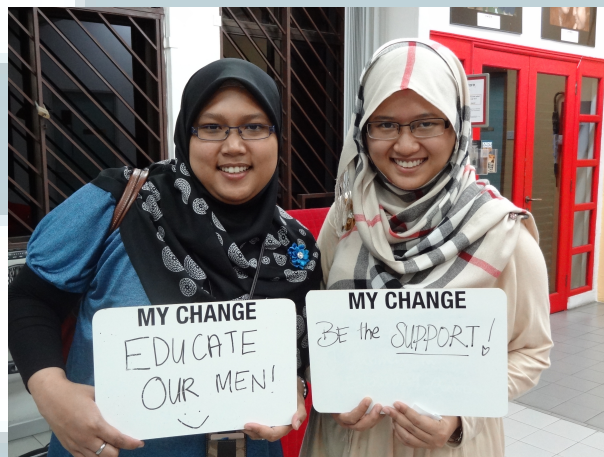 MY CHANGE
EDUCATE
OUR MEN!
MY CHANGE
BE the SUPPORT!